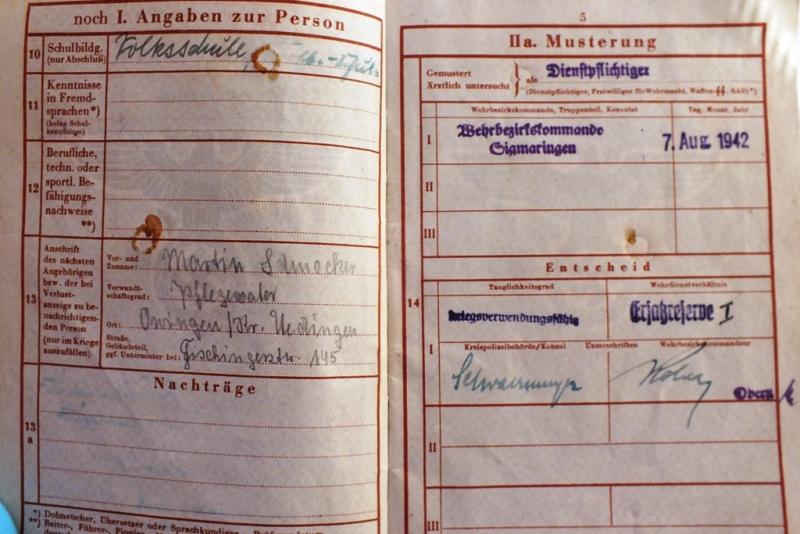 noch I. Angaben zur Person
10 Schulbildg. (nur Abschluß)
Volksschule,
11 Kenntnisse in Fremd-
sprachen*)
(keine Schul-
kenntnisse)
12 Berufliche,
techn. oder
sportl. Be-
fähigungs-
nachweise
**)
13 Anschrift
des nächsten
Angehörigen
bzw. der bei
Verlust-
anzeige zu be-
nachrichtigen-
den Person
(nur im Kriege
auszufüllen)
Vor- und Zuname: Martin
Verwandt-schaftsgrad: Pflegevater
Ort: Owingen
Straße, Gebäudeteil, ggf. Untermieter bei: 145
Nachträge
13 a
*) Dolmetscher, Übersetzer oder Sprachkundiger
**) Reiter-, Führer-,
5
IIa. Musterung
Gemustert
Ärztlich untersucht } als Dienstpflichtiger
(Dienstpflichtiger, Freiwilliger für Wehrmacht, Waffen-SS, RAD)*)
Wehrbezirkskommando, Truppenteil, Konsulat
Tag, Monat, Jahr
I
Wehrbezirkskommando
Sigmaringen
7. Aug. 1942
II
III
14
Entscheid
Tauglichkeitsgrad
Wehrdienstverhältnis
I
kriegsverwendungsfähig
Ersatzreserve I
Kreispolizeibehörde/Konsul
Unterschriften
Wehrbezirkskommandeur
II
III